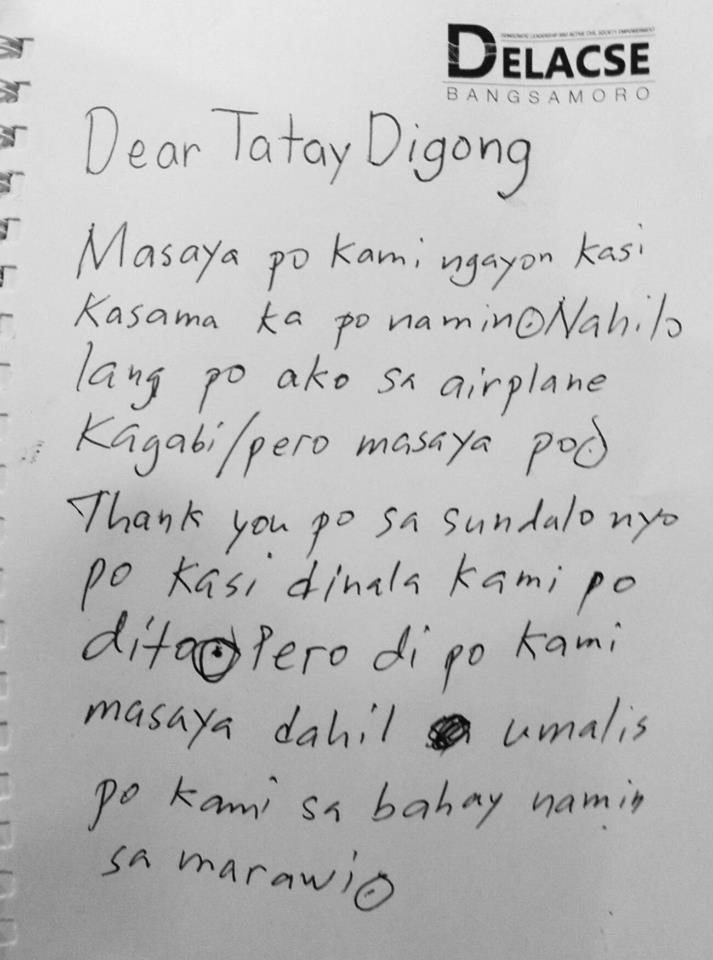 DEMOCRATIC LEADERSHIP AND ACTIVE CIVIL SOCIETY EMPOWERMENT
DELACSE
BANGSAMORO
Dear Tatay Digong
Masaya po kami ngayon kasi
kasama ka po namin. Nahilo
lang po ako sa airplane
kagabi/pero masaya po.
Thank you po sa sundalo nyo
po kasi dinala kami po
dito. Pero di po kami
masaya dahil umalis
po kami sa bahay namin
sa marawi.